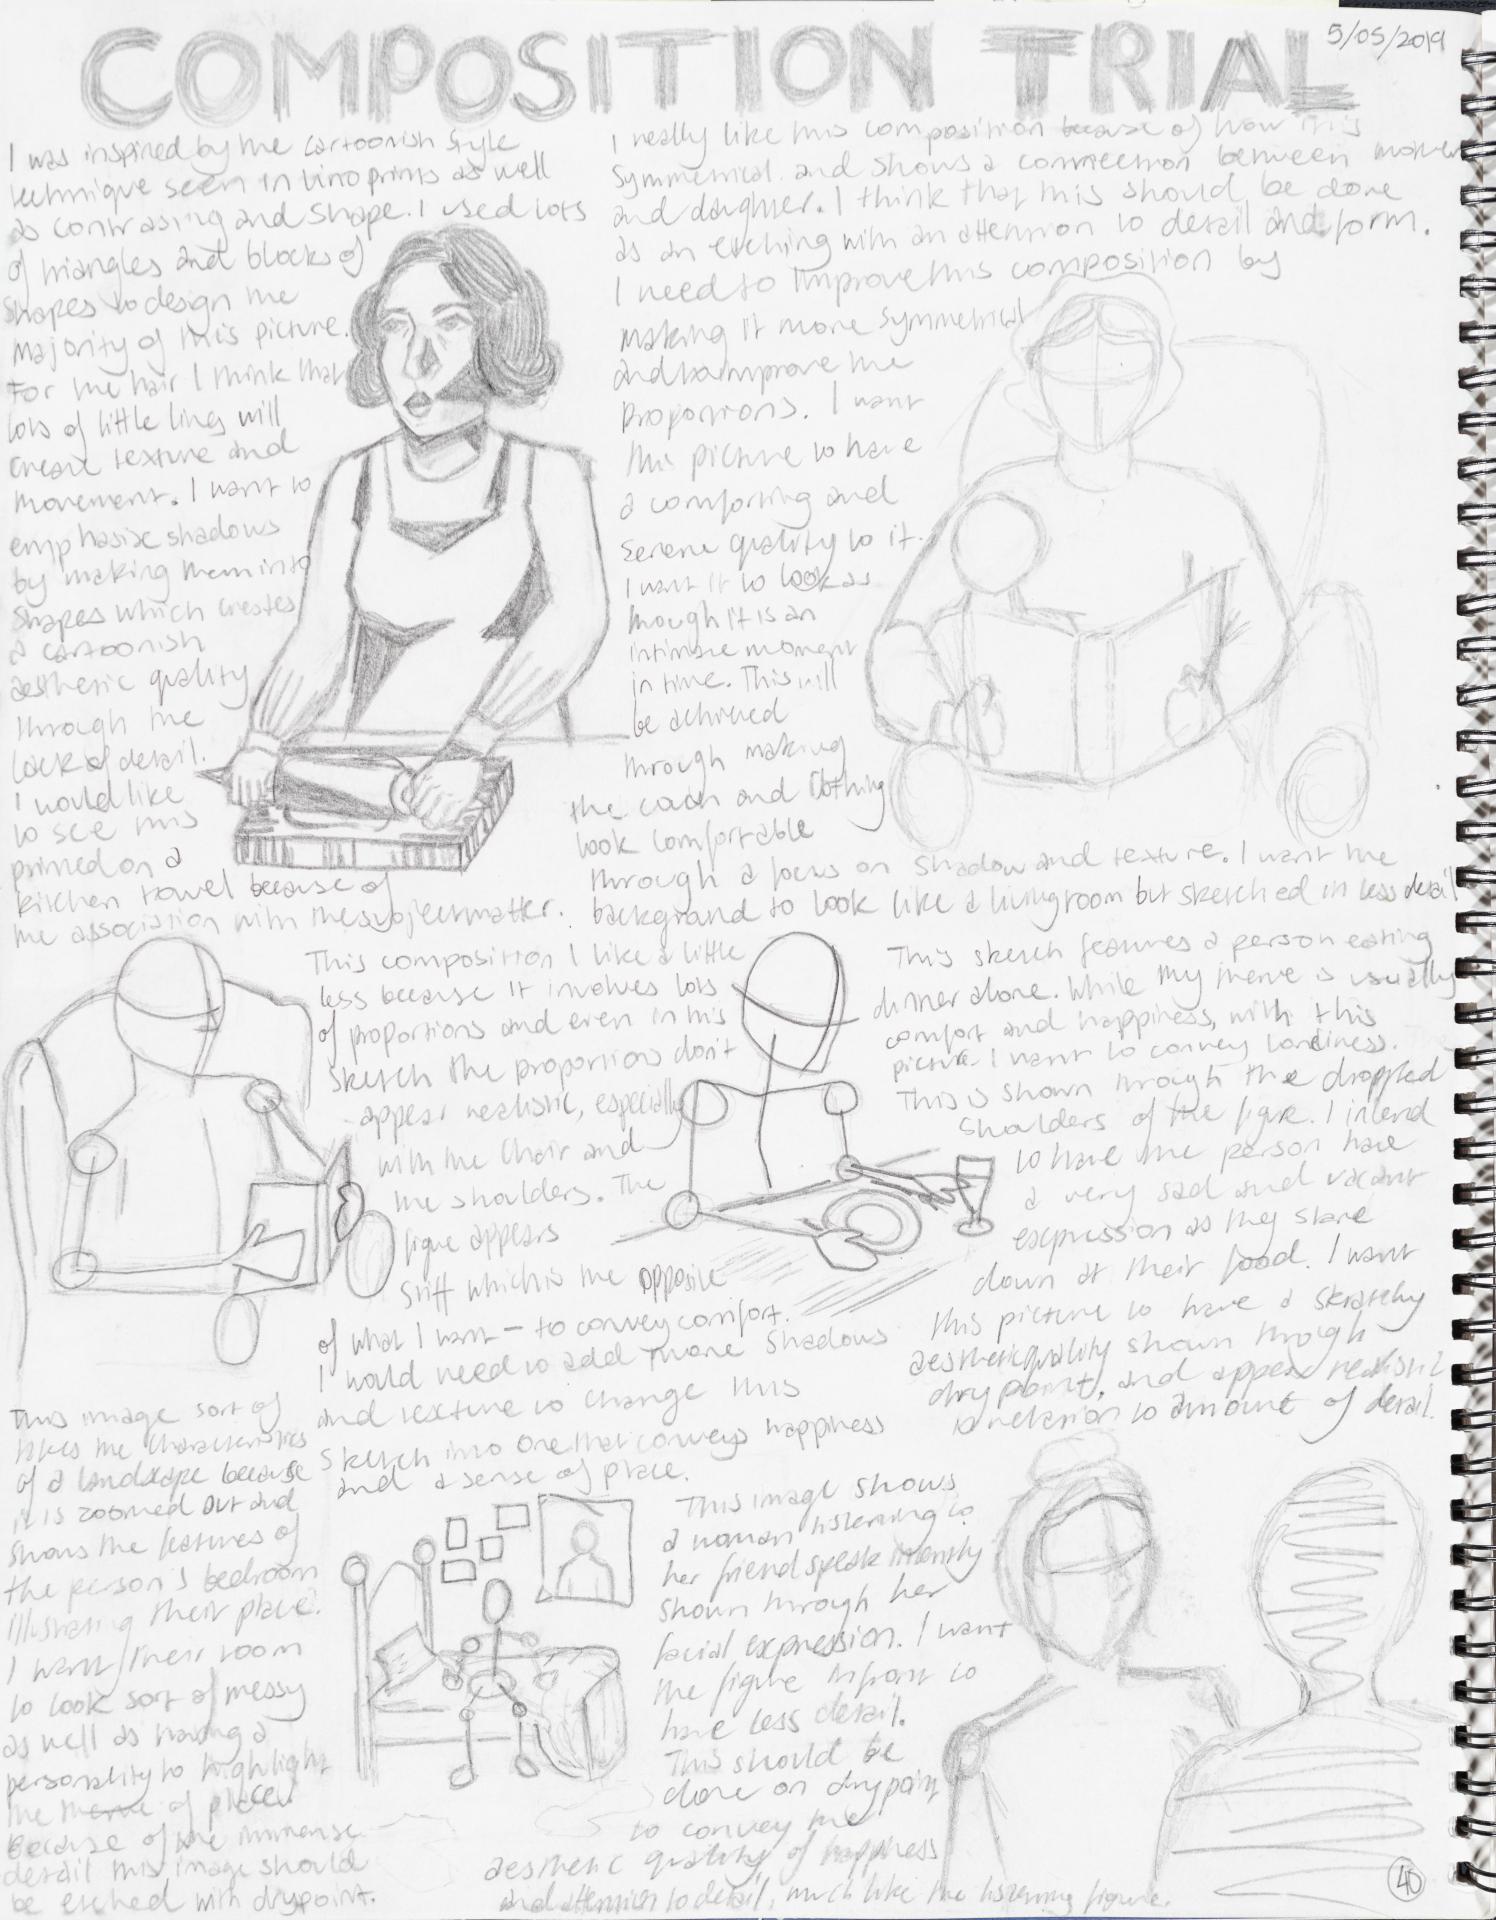 COMPOSITION TRIAL
5/05/2019
I was inspired by the cartoonish style
technique seen in lino prints as well
as contrasing and shape. I used lots
of triangles and blocks of
shapes to design the
majority of this picture.
For the hair I think that
lots of little lines will
create texture and
movement. I want to
emphasise shadows
by making them into
shapes which creates
a cartoonish
aesthetic quality
through the
lack of detail.
I would like
to see this
printed on a
kitchen towel because of
the association with the subject matter.
I really like this composition because of how it is
symmetrical and shows a connection between mother
and daughter. I think that this should be done
as an etching with an attention to detail and form.
I need to improve this composition by
making it more symmetrical
and to improve the
proportions. I want
this picture to have
a comforting and
serene quality to it.
I want it to look as
though it is an
intimate moment
in time. This will
be achieved
through making
the couch and clothing
look comfortable
through a focus on shadow and texture. I want the
background to look like a livingroom but sketched in less detail
This composition I like a little
less because it involves lots
of proportions and even in this
sketch the proportions don't
appear realistic, especially
with the chair and
the shoulders. The
figure appears
stiff which is the opposite
of what I want - to convey comfort.
I would need to add more shadows
and texture to change this
sketch into one that conveys happiness
and a sense of place.
This sketch features a person eating
dinner alone. While my theme is usually
comfort and happiness, with this
picture I want to convey loneliness.
This is shown through the droppled
shoulders of the figure. I intend
to have the person have
a very sad and vacant
expression as they stare
down at their food. I want
this picture to have a skratchy
aesthetic quality shown through
drypoint, and appear realistic
in relation to amount of detail.
This image sort of
takes the characteristics
of a landscape because
it is zoomed out and
shows the features of
the person's bedroom
illustrating their place.
I want their room
to look sort of messy
as well as having a
personality to highlight
the theme of place
because of the immense
detail this image should
be etched with drypoint.
This image shows
a woman listening to
her friend speak intently
shown through her
facial expression. I want
the figure infront to
have less detail.
This should be
done on drypoint
to convey the
aesthetic quality of happiness
and attention to detail, much like the listening figure.
40